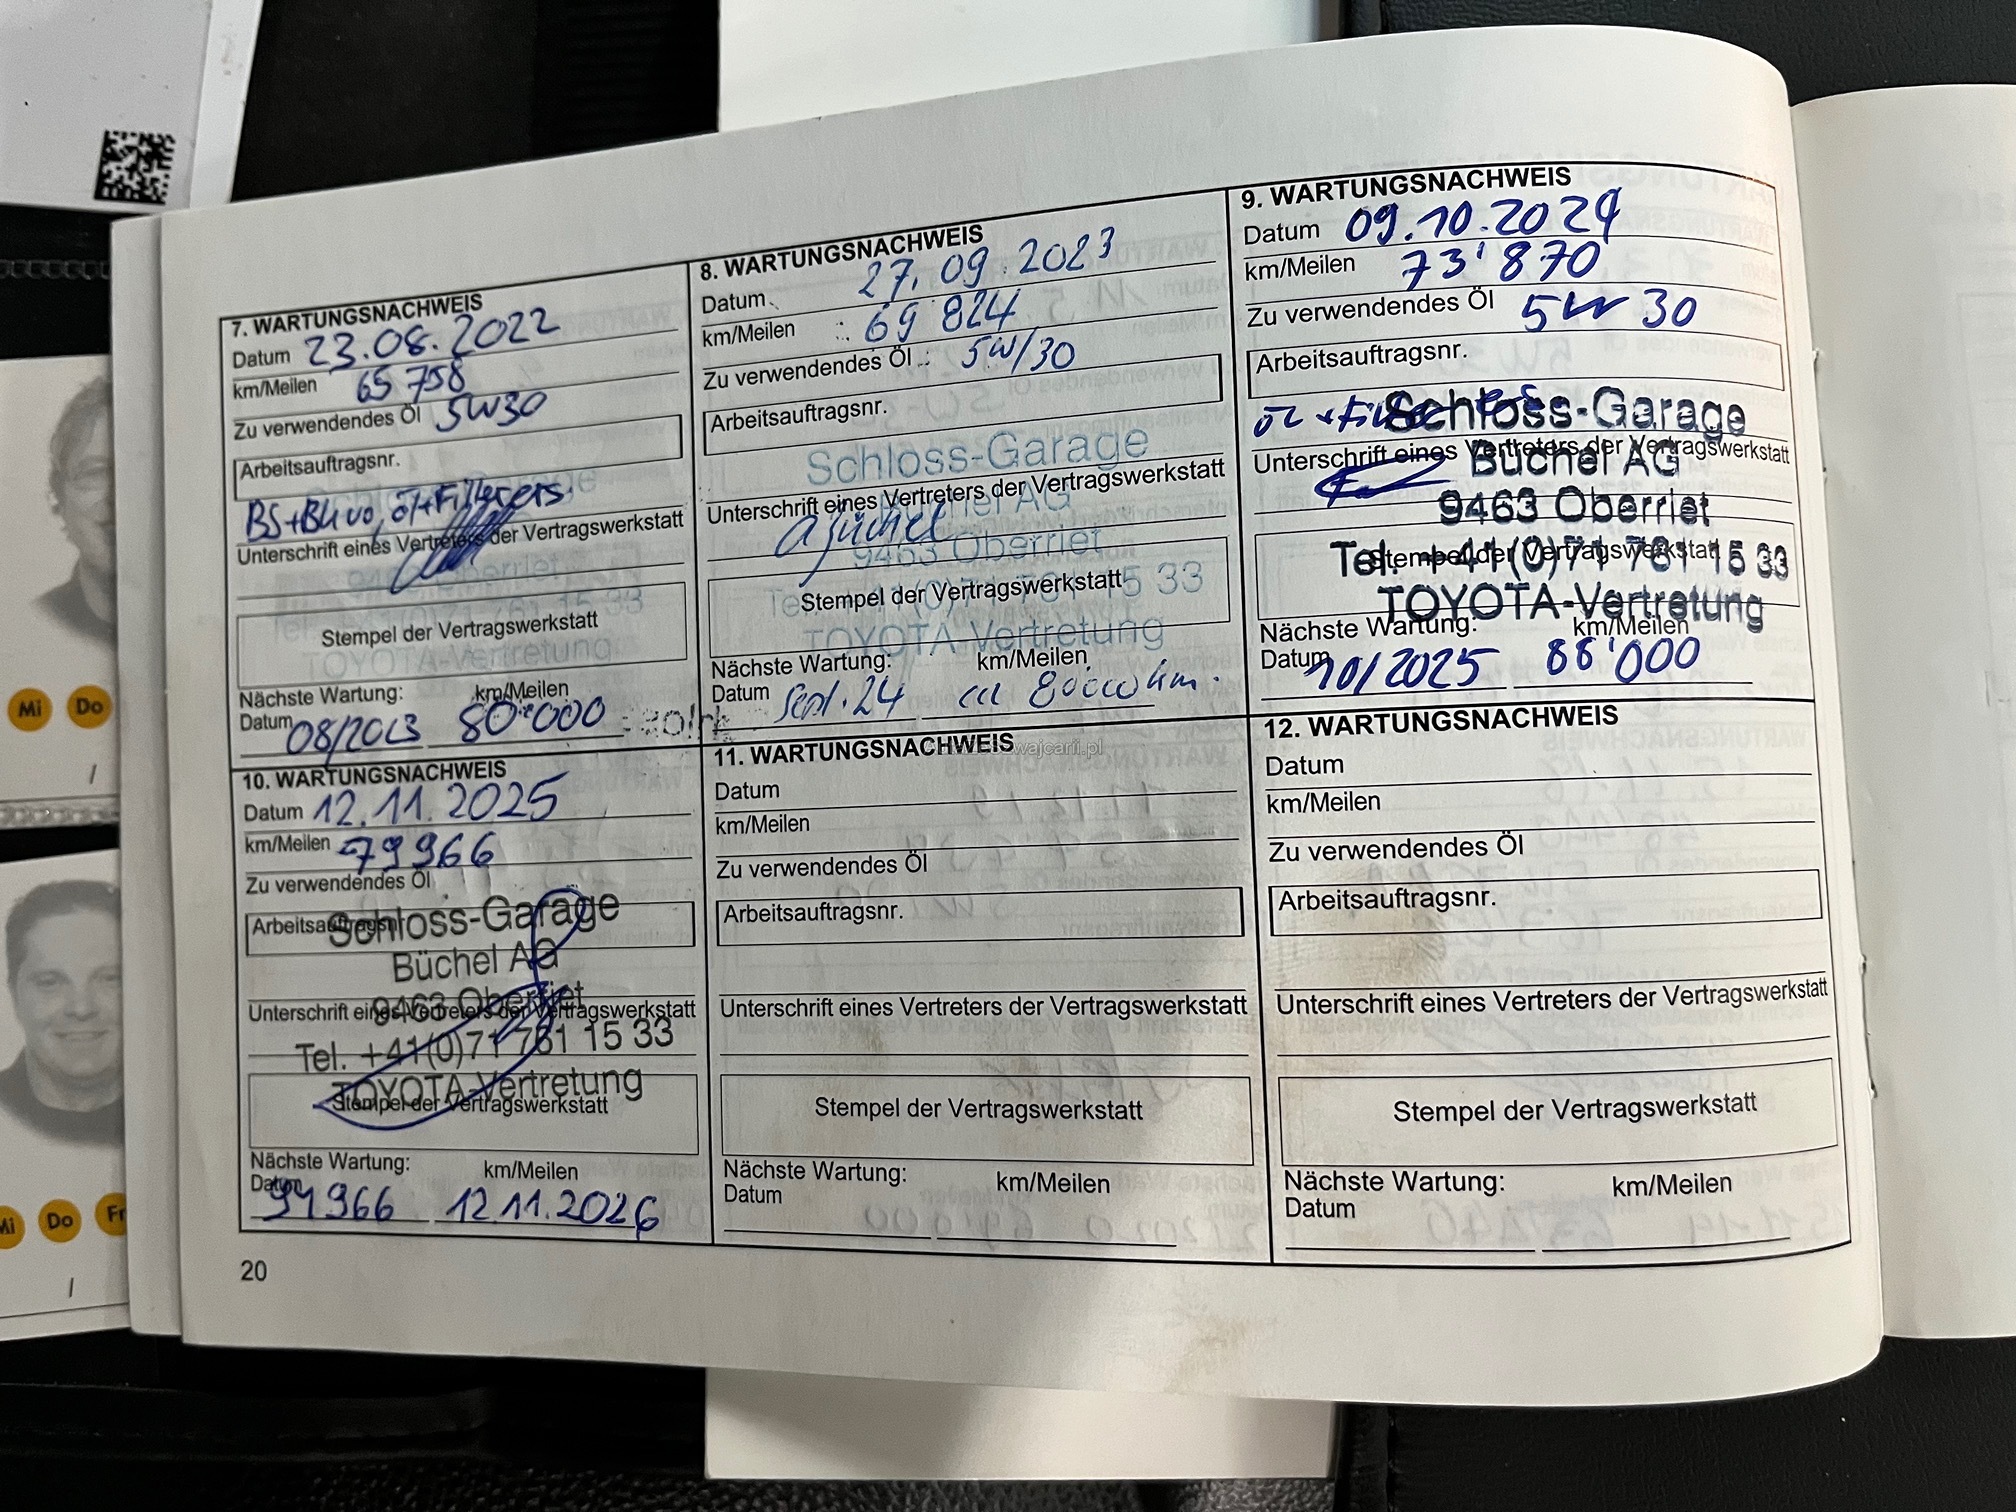 7. WARTUNGSNACHWEIS
Datum 23.08.2022
km/Meilen 65 758
Zu verwendendes Öl 5W30
Arbeitsauftragsnr.
Unterschrift eines Vertreters der Vertragswerkstatt
Stempel der Vertragswerkstatt
TOYOTA-Vertretung
Nächste Wartung: km/Meilen
Datum 08/2023 80'000
8. WARTUNGSNACHWEIS
Datum 27.09.2023
km/Meilen 69 824
Zu verwendendes Öl 5W/30
Arbeitsauftragsnr.
Schloss-Garage
Unterschrift eines Vertreters der Vertragswerkstatt
Büchel AG
9463 Oberriet
Stempel der Vertragswerkstatt
Tel. +41(0)71 761 15 33
TOYOTA-Vertretung
Nächste Wartung: km/Meilen
Datum Sept. 24 ca 80000 km.
9. WARTUNGSNACHWEIS
Datum 09.10.2024
km/Meilen 73'870
Zu verwendendes Öl 5W 30
Arbeitsauftragsnr.
Schloss-Garage
Unterschrift eines Vertreters der Vertragswerkstatt
Büchel AG
9463 Oberriet
Stempel der Vertragswerkstatt
Tel. +41(0)71 761 15 33
TOYOTA-Vertretung
Nächste Wartung: km/Meilen
Datum 10/2025 88'000
10. WARTUNGSNACHWEIS
Datum 12.11.2025
km/Meilen 79966
Zu verwendendes Öl
Arbeitsauftragsnr.
Schloss-Garage
Büchel AG
9463 Oberriet
Unterschrift eines Vertreters der Vertragswerkstatt
Tel. +41(0)71 761 15 33
TOYOTA-Vertretung
Stempel der Vertragswerkstatt
Nächste Wartung: km/Meilen
Datum 94966 12.11.2026
11. WARTUNGSNACHWEIS
Datum
km/Meilen
Zu verwendendes Öl
Arbeitsauftragsnr.
Unterschrift eines Vertreters der Vertragswerkstatt
Stempel der Vertragswerkstatt
Nächste Wartung: km/Meilen
Datum
12. WARTUNGSNACHWEIS
Datum
km/Meilen
Zu verwendendes Öl
Arbeitsauftragsnr.
Unterschrift eines Vertreters der Vertragswerkstatt
Stempel der Vertragswerkstatt
Nächste Wartung: km/Meilen
Datum
20
Mi Do
Mi Do Fr